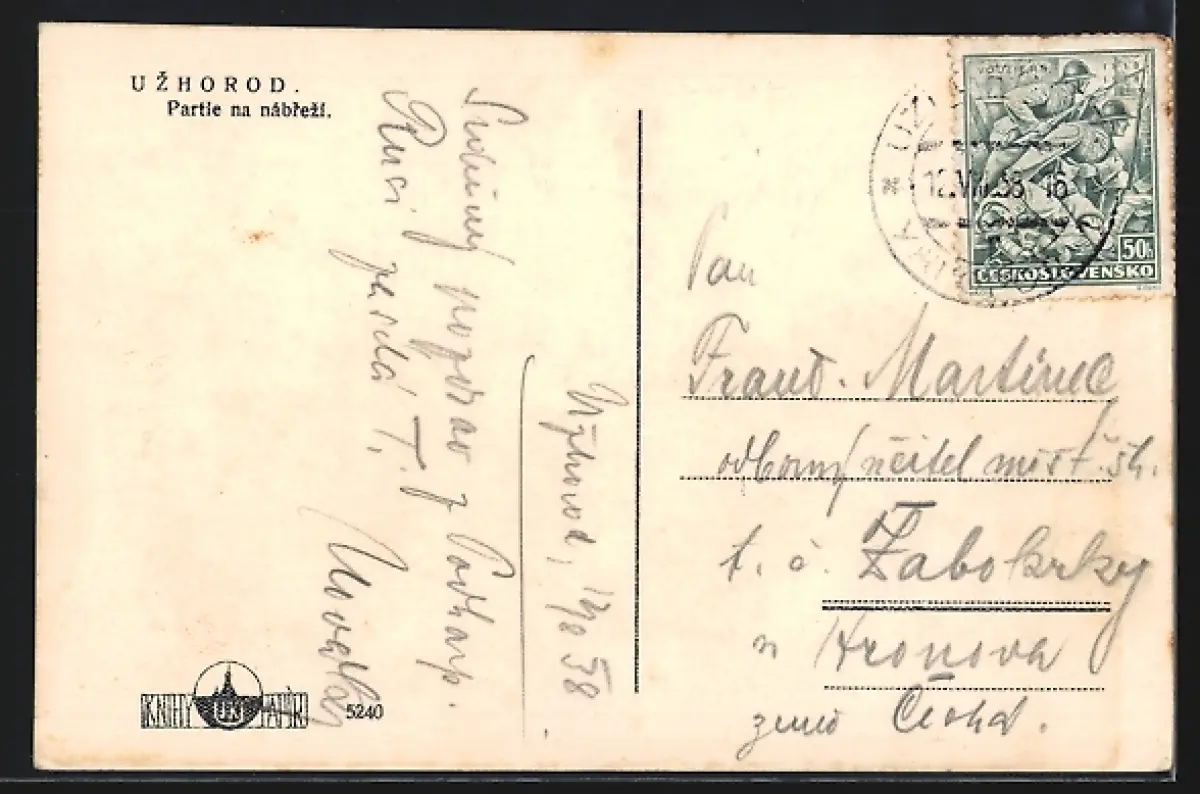 UŽHOROD.
Partie na nábřeží.
Srdečný pozdrav z Podkarp.
Rusi posílá T.
Užhorod, 12/8 38
KNIHY UKJ PAPÍR
5240
12.VIII.38-16
50h
ČESKOSLOVENSKO
Pan
Frant. Martinec
odborný učitel měšť. šk.
t. č. Žabokrky
n Hronova
země Česká.